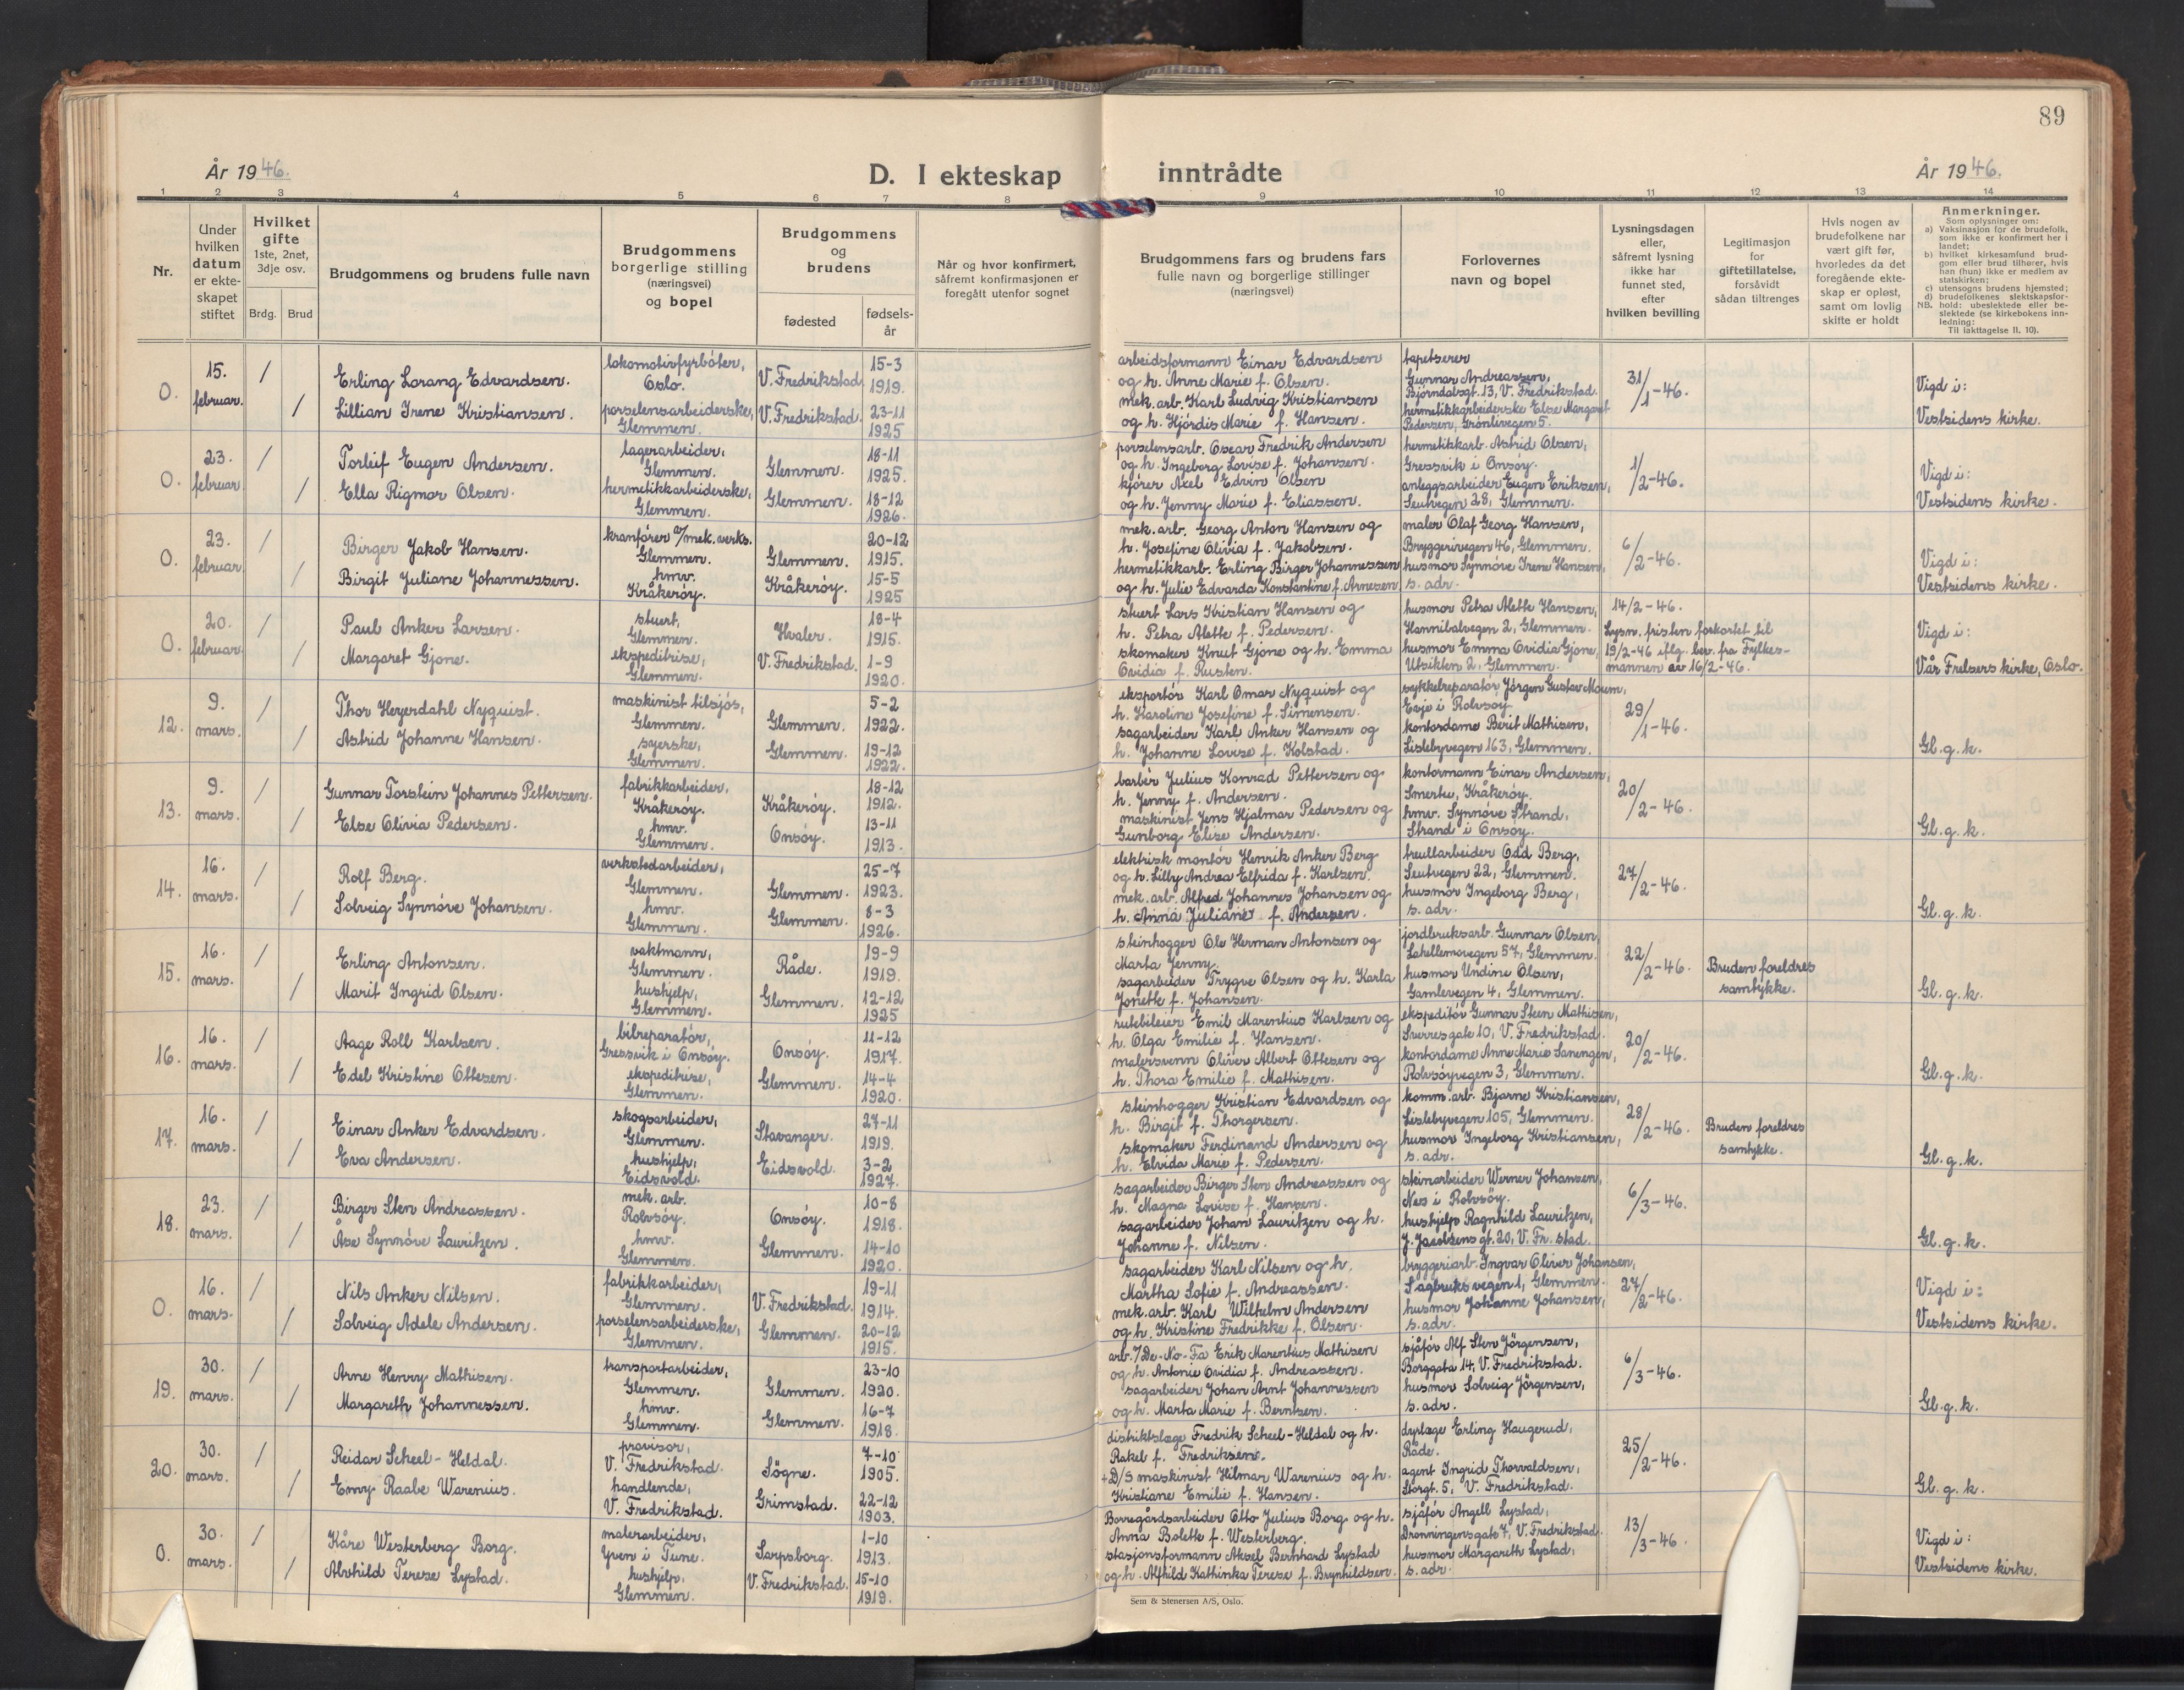 89
År 1946.
D. I ekteskap inntrådte
År 1946.
1 2 3 4 5 6 7 8 9 10 11 12 13 14
Nr.
Under hvilken datum er ekteskapet stiftet
Hvilket gifte
1ste, 2net, 3dje osv.
Brdg. Brud
Brudgommens og brudens fulle navn
Brudgommens borgerlige stilling (næringsvei) og bopel
Brudgommens og brudens
fødested
fødselsår
Når og hvor konfirmert, såfremt konfirmasjonen er foregått utenfor sognet
Brudgommens fars og brudens fars fulle navn og borgerlige stillinger (næringsvei)
Forlovernes navn og bopel
Lysningsdagen eller, såfremt lysning ikke har funnet sted, efter hvilken bevilling
Legitimasjon for giftetillatelse, forsåvidt sådan tiltrenges
Hvis nogen av brudefolkene har vært gift før, hvorledes da det foregående ekteskap er opløst, samt om lovlig skifte er holdt
Anmerkninger.
Som oplysninger om:
a) Vaksinasjon for de brudefolk, som ikke er konfirmert her i landet;
b) hvilket kirkesamfund brudgom eller brud tilhører, hvis han (hun) ikke er medlem av statskirken;
c) utensogns brudens hjemsted;
d) brudefolkenes slektskapsforhold: ubeslektede eller beslektede (se kirkebokens innledning:
NB.
Til iakttagelse II. 10).
0. 15. februar. / /
Erling Lorang Edvardsen.
Lillian Irene Kristiansen.
lokomotivfyrbøter,
Oslo.
porselensarbeiderske,
Glemmen.
V. Fredrikstad. 15-3 1919.
V. Fredrikstad. 23-11 1925
arbeidsformann Einar Edvardsen
og h. Anne Marie f. Olsen.
mek. arb. Karl Ludvig Kristiansen
og h. Hjördis Marie f. Hansen.
tapetserer
Gunnar Andreassen,
Bjørndalsgt. 13, V. Fredrikstad.
hermetikkarbeiderske Else Margaret
Pedersen, Grønlivegen 5.
31/1-46.
Vigd i:
Vestsidens kirke.
0. 23. februar / /
Torleif Eugen Andersen.
Ella Rigmor Olsen.
lagerarbeider,
Glemmen.
hermetikkarbeiderske,
Glemmen.
Glemmen. 18-11 1925.
Glemmen. 18-12 1926.
porselensarb. Oscar Fredrik Andersen
og h. Ingeborg Lovise f. Johansen.
kjører Axel Edvin Olsen
og h. Jenny Marie f. Eliassen.
hermetikkarb. Astrid Olsen,
Gressvik i Onsøy.
anleggsarbeider Eugen Eriksen,
Seutvegen 28, Glemmen.
1/2-46.
Vigd i:
Vestsidens kirke.
0. 23. februar / /
Birger Jakob Hansen.
Birgit Juliane Johannessen.
kranfører v/mek. verks.
Glemmen.
hmv.
Kråkerøy.
Glemmen. 20-12 1915.
Kråkerøy. 15-5 1925
mek. arb. Georg Anton Hansen og
h. Josefine Olivia f. Jakobsen.
hermetikkarb. Erling Birger Johannessen
og h. Julie Edvarda Konstantine f. Arnesen
maler Olaf Georg Hansen,
Bryggerivegen 46, Glemmen.
husmor Synnøve Irene Hansen,
s. adr.
6/2-46.
Vigd i:
Vestsidens kirke.
0. 20. februar / /
Paul Anker Larsen.
Margaret Gjone.
stuert,
Glemmen.
ekspeditrise,
Glemmen.
Hvaler. 18-4 1915.
V. Fredrikstad. 1-9 1920.
stuert Lars Kristian Hansen og
h. Petra Alette f. Pedersen.
skomaker Knut Gjone og h. Emma
Ovidia f. Rusten.
husmor Petra Alette Hansen,
Hannibalvegen 2, Glemmen.
husmor Emma Ovidia Gjone,
Utsikten 2, Glemmen.
14/2-46.
Lysn. fristen forkortet til
19/2-46 iflg. bev. fra Fylkes-
mannen av 16/2-46.
Vigd i:
Vår Frelsers kirke, Oslo.
12. 9. mars. / /
Thor Heyerdahl Nyquist.
Astrid Johanne Hansen.
maskinist tilsjøs,
Glemmen.
syerske,
Glemmen.
Glemmen. 5-2 1922.
Glemmen. 19-12 1922.
eksportør Karl Omar Nyquist og
h. Karoline Josefine f. Simensen.
sagarbeider Karl Anker Hansen og
h. Johanne Lovise f. Kolstad.
sykkelreparatør Jörgen Gustav Moum,
Evje i Rolvsøy.
kontordame Berit Mathisen,
Lislebyvegen 163, Glemmen.
29/1-46.
Gl. g. k.
13. 9. mars. / /
Gunnar Torstein Johannes Pettersen.
Else Olivia Pedersen.
fabrikkarbeider,
Kråkerøy.
hmv.
Glemmen.
Kråkerøy. 18-12 1912.
Onsøy. 13-11 1913.
barber Julius Konrad Pettersen og
h. Jenny f. Andersen.
maskinist Jens Hjalmar Pedersen og
Gunborg Elise Andersen.
kontormann Einar Andersen,
Smertu, Kråkerøy.
hmv. Synnøve Strand,
Strand i Onsøy.
20/2-46.
Gl. g. k.
14. 16. mars. / /
Rolf Berg.
Solveig Synnøve Johansen.
verkstedarbeider,
Glemmen.
hmv.
Glemmen.
Glemmen. 25-7 1923.
Glemmen. 8-3 1926.
elektrisk montør Henrik Anker Berg
og h. Lilly Andrea Elfrida f. Karlsen.
mek. arb. Alfred Johannes Johansen og
h. Anna Juliane f. Andersen.
treullarbeider Odd Berg,
Seutvegen 22, Glemmen.
husmor Ingeborg Berg,
s. adr.
27/2-46.
Gl. g. k.
15. 16. mars. / /
Erling Antonsen.
Marit Ingrid Olsen.
vaktmann,
Glemmen.
hushjelp,
Glemmen.
Råde. 19-9 1919.
Glemmen. 12-12 1925
steinhogger Ole Herman Antonsen og
Marta Jenny.
sagarbeider Trygve Olsen og h. Karla
Jonette f. Johansen.
jordbruksarb. Gunnar Olsen,
Lahellemovegen 57, Glemmen.
husmor Undine Olsen,
Gamlevegen 4, Glemmen.
22/2-46.
Bruden foreldres
samtykke.
Gl. g. k.
16. 16. mars. / /
Aage Roll Karlsen.
Edel Kristine Ottesen.
bilreparatør,
Gressvik i Onsøy.
ekspeditrise,
Glemmen.
Onsøy. 11-12 1917.
Glemmen. 14-4 1920.
rutebileier Emil Marentius Karlsen og
h. Olga Emilie f. Hansen.
malersvenn Oliver Albert Ottesen og
h. Thora Emilie f. Mathisen.
ekspeditør Gunnar Steen Mathisen,
Sverresgate 10, V. Fredrikstad.
kontordame Anne Marie Sanengen,
Rolvsøyvegen 3, Glemmen.
20/2-46.
Gl. g. k.
17. 16. mars. / /
Einar Anker Edvardsen.
Eva Andersen.
skogsarbeider,
Glemmen.
hushjelp,
Eidsvold.
Stavanger. 27-11 1919.
Eidsvold. 3-2 1927.
steinhogger Kristian Edvardsen og
h. Birgit f. Thorgersen.
skomaker Ferdinand Andersen og
h. Elvida Marie f. Pedersen.
komm. arb. Bjarne Kristiansen,
Lislebyvegen 105, Glemmen.
husmor Ingeborg Kristiansen,
s. adr.
28/2-46.
Bruden foreldres
samtykke.
Gl. g. k.
18. 23. mars. / /
Birger Sten Andreassen.
Åse Synnøve Lauritzen.
mek. arb.
Rolvsøy.
hmv.
Glemmen.
Onsøy. 10-8 1918.
Glemmen. 14-10 1920.
sagarbeider Birger Sten Andreassen og
h. Magna Lovise f. Hansen.
sagarbeider Johan Lauritzen og h.
Johanne f. Nilsen.
skinarbeider Werner Johansen,
Nes i Rolvsöy.
hushjelp Ragnhild Lauritzen,
J. Jacobsens gt. 20, V. Fr. stad.
6/3-46.
Gl. g. k.
0. 16. mars. / /
Nils Anker Nilsen.
Solveig Adele Andersen.
fabrikkarbeider,
Glemmen.
porselensarbeiderske,
Glemmen.
V. Fredrikstad. 19-11 1914.
Glemmen. 20-12 1915.
sagarbeider Karl Nilsen og h.
Martha Sofie f. Andreassen.
mek. arb. Karl Wilhelm Andersen
og h. Kristine Fredrikke f. Olsen.
bryggeriarb. Ingvar Oliver Johansen,
Sagbruksvegen 1, Glemmen.
husmor Johanne Johansen,
s. adr.
27/2-46.
Vigd i:
Vestsidens kirke.
19. 30. mars. / /
Arne Henry Mathisen.
Margareth Johannessen.
transportarbeider,
Glemmen.
hmv.
Glemmen.
Glemmen. 23-10 1920.
Glemmen. 16-7 1918.
arb. /De-No-Fa Erik Marentius Mathisen
og h. Antonie Ovidia f. Andreassen.
sagarbeider Johan Arnt Johannessen
og h. Marta Marie f. Berntsen.
sjåfør Alf Sten Jörgensen,
Borggata 14, V. Fredrikstad.
husmor Solveig Jörgensen,
s. adr.
6/3-46.
Gl. g. k.
20. 30. mars. / /
Reidar Scheel-Heldal.
Emy Raabe Warenius.
provisor,
V. Fredrikstad.
handlende,
V. Fredrikstad.
Søgne. 7-10 1905.
Grimstad. 22-12 1903.
distriktslæge Fredrik Scheel-Heldal og h.
Rakel f. Fredriksen.
+D/S maskinist Hilmar Warenius og h.
Kristiane Emilie f. Hansen.
dyrlæge Erling Haugerud,
Råde.
agent Ingrid Thorvaldsen,
Storgt. 5, V. Fredrikstad.
25/2-46.
Gl. g. k.
0. 30. mars. / /
Kåre Westerberg Borg.
Alvhild Terese Lystad.
malerarbeider,
Yven i Tune.
hushjelp,
Glemmen.
Sarpsborg. 1-10 1913.
V. Fredrikstad. 15-10 1919.
Borregårdsarbeider Otto Julius Borg og h.
Anna Bolette f. Westerberg.
stasjonsformann Aksel Bernhard Lystad
og h. Alfhild Kathinka Terese f. Brynhildsen.
sjåfør Angell Lystad,
Dronningensgate 7, V. Fredrikstad.
husmor Margareth Lystad,
s. adr.
13/3-46.
Vigd i:
Vestsidens kirke.
Sem & Stenersen A/S, Oslo.